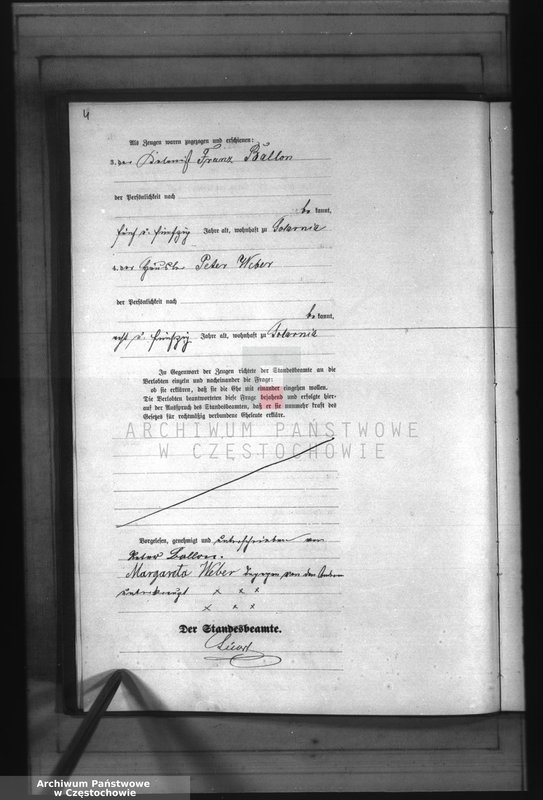 4
Als Zeugen waren zugezogen und erschienen:
3. der Kolonist Franz Ballon
der Persönlichkeit nach
be kannt,
fünf u. fünfzig Jahre alt, wohnhaft zu Solarnia
4. der Häusler Peter Weber
der Persönlichkeit nach
be kannt,
acht u. fünfzig Jahre alt, wohnhaft zu Solarnia
In Gegenwart der Zeugen richtete der Standesbeamte an die
Verlobten einzeln und nacheinander die Frage:
ob sie erklären, daß sie die Ehe mit einander eingehen wollen.
Die Verlobten beantworteten diese Frage bejahend und erfolgte hier-
auf der Ausspruch des Standesbeamten, daß er sie nunmehr kraft des
Gesetzes für rechtmäßig verbundene Eheleute erkläre.
ARCHIWUM PAŃSTWOWE
W CZĘSTOCHOWIE
Vorgelesen, genehmigt und unterschrieben von
Peter Ballon.
Margareta Weber dagegen von den Andern
unterkreuzt x x x
x x x
Der Standesbeamte.
Archiwum Państwowe
w Częstochowie